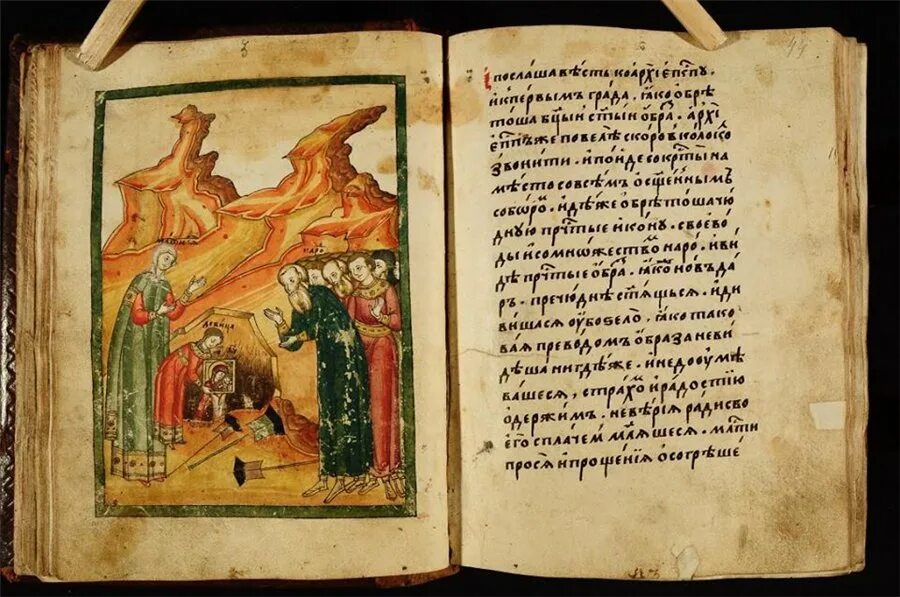 з
44
мати
наро
девица
послашавѣсть коархїепⷭ҇кпꙋ .
икпервымъ града . ꙗкообрѣ
тоша бцыи ст҃ыи ѡбра . архї
епⷭ҇кпъже повелѣ скоро вколокоⷧ
звонити . ипоиде сокрⷭ҇ты на
мѣсто совсѣмъ ѻсщеннымъ
соборо . идѣже обрѣтоша чю
дную прⷱ҇тые икону . своево
ды исомножество наро . иви
дѣ прⷱ҇тые ѻбра . ꙗко новъ да
ръ . пречюднѣ стоящься . иди
вишася оубоѕело , ꙗко тако
вая преводомъ ѻбраза неви
дѣша нигдѣже . инедооумѣ
вашеся , страхо ирадостїю
одержими . невѣрїя ради сво
его сплачем маляшеся . мл҇ти
прося ипрощенїя ѻсогрѣше